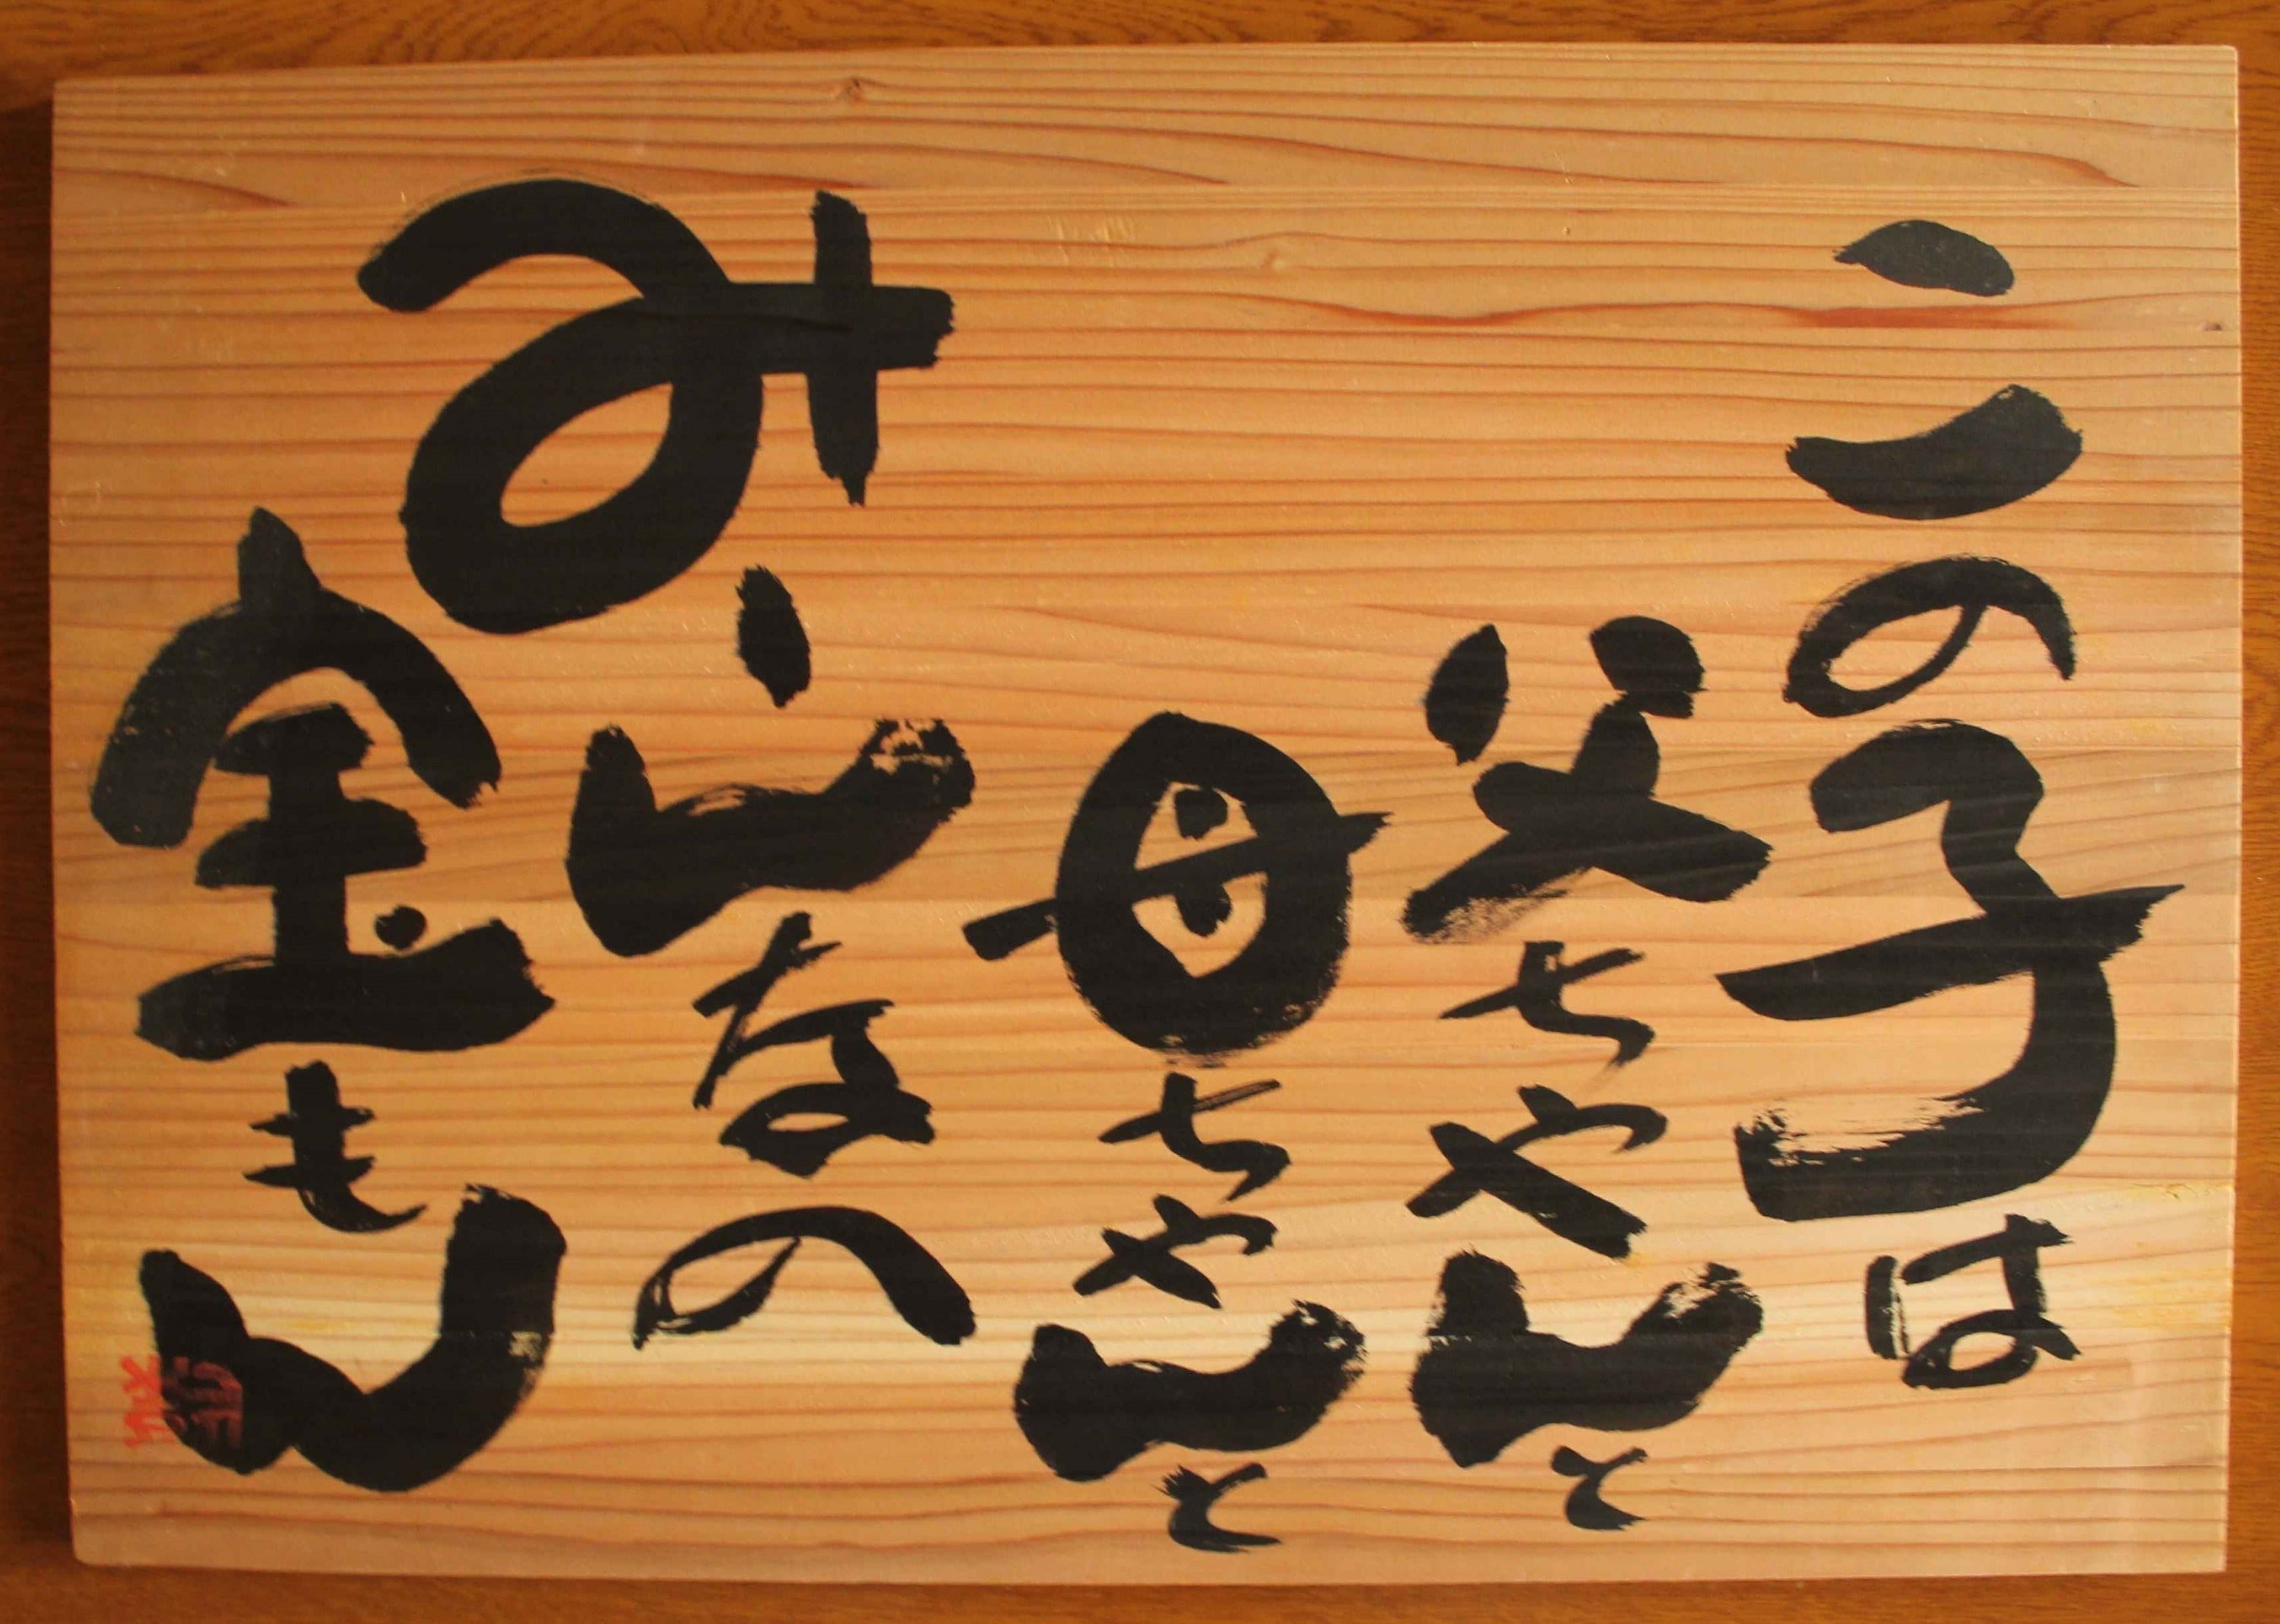 この子は
父ちゃんと
母ちゃんと
みんなの
宝もん